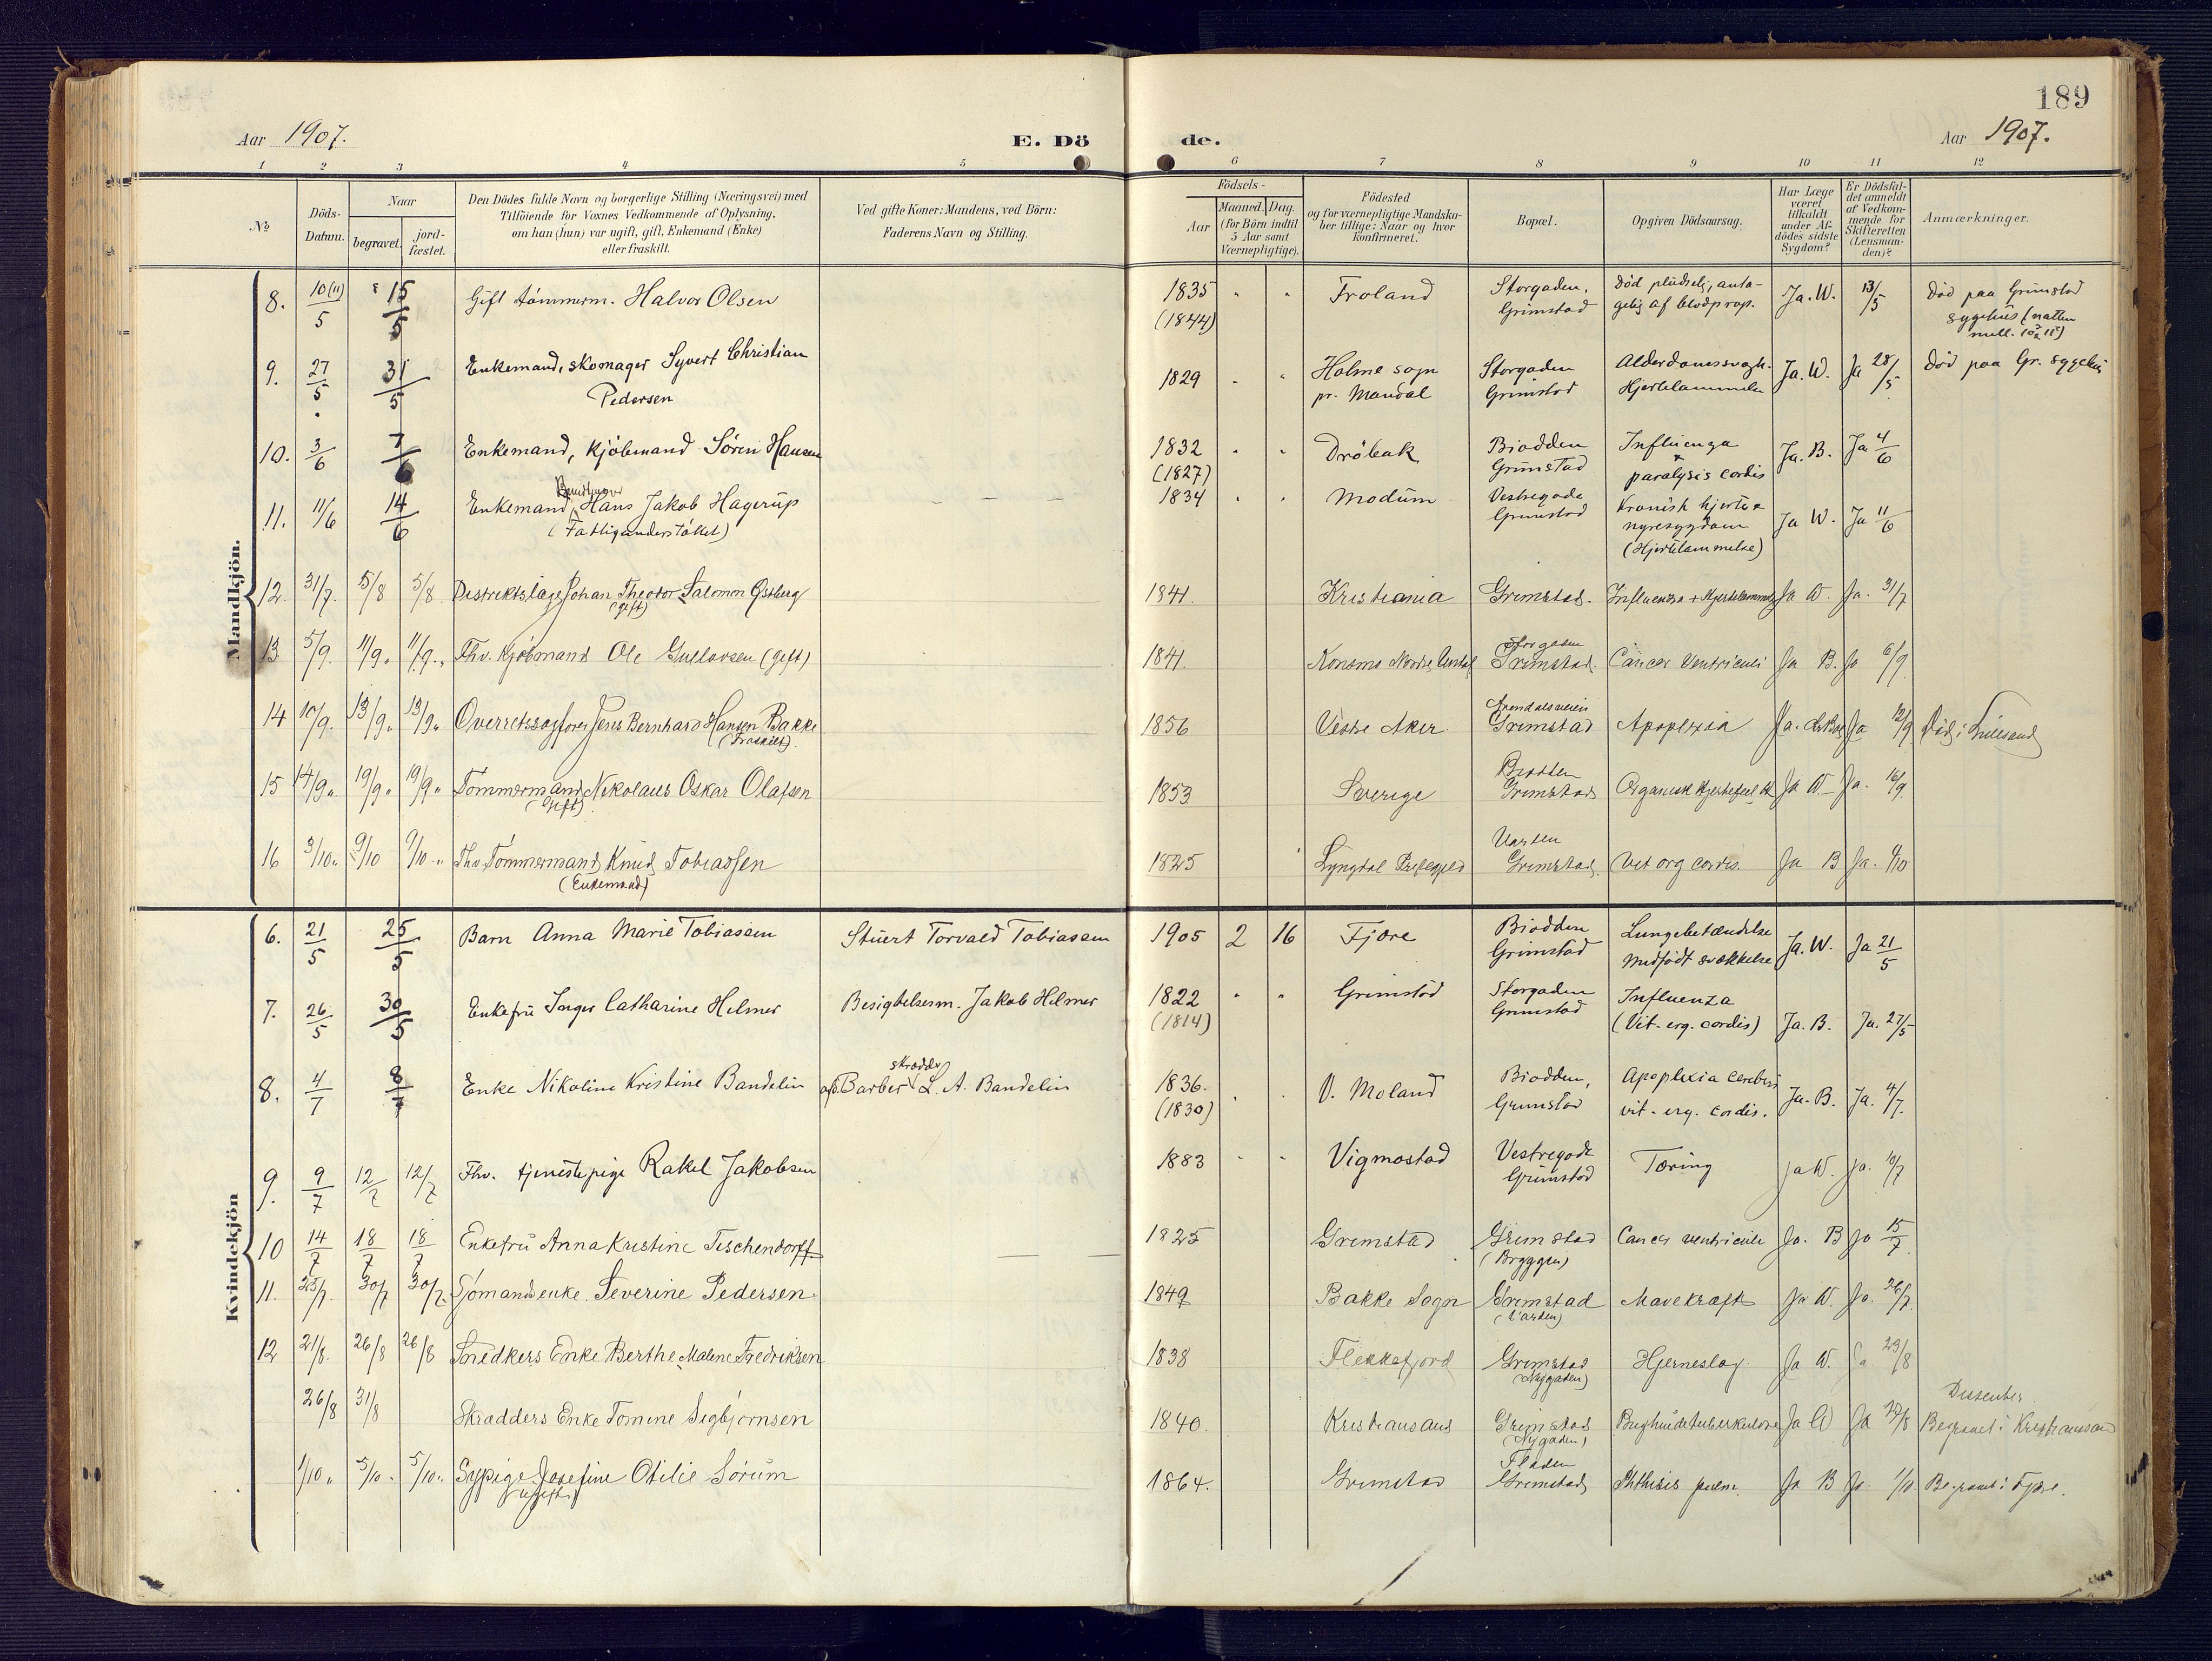 189
Aar 1907. E. Dö de. Aar 1907.
1 2 3 4 5 6 7 8 9 10 11 12
No
Döds-Datum.
Naar
begravet. jord-fæstet.
Den Dödes fulde Navn og borgerlige Stilling (Næringsvei) med
Tilföiende for Voxnes Vedkommende af Oplysning,
om han (hun) var ugift, gift, Enkemand (Enke)
eller fraskilt.
Ved gifte Koner: Mandens, ved Börn:
Faderens Navn og Stilling.
Födsels-
Aar
Maaned. Dag.
(for Börn indtil
5 Aar samt
Værnepligtige).
Födested
og for værnepligtige Mandska-
ber tillige: Naar og hvor
konfirmeret.
Bopæl.
Opgiven Dödsaarsag.
Har Læge
været
tilkaldt
under Af-
dödes sidste
Sygdom?
Er Dödsfal-
det anmeldt
af Vedkom-
mende for
Skifteretten
(Lensman-
den)?
Anmærkninger.
Mandkjön.
8. 10(11)/5 15/5 Gift tømmerm. Halvor Olsen 1835 (1844) Froland Storgaden, Grimstad Død pludselig, anta-gelig af blodprop. Ja. W. 13/5 Død paa Grimstad sygehus (natten mell. 10 & 11)
9. 27/5 31/5 Enkemand, skomager Syvert Christian Pedersen 1829 Holme sogn pr. Mandal Storgaden Grimstad Alderdomssvagh. Hjertelammelse Ja. W. Ja 28/5 Død paa Gr. sygehus
10. 3/6 7/6 Enkemand, Kjøbmand Søren Hansen 1832 (1827) Drøbak Biodden Grimstad Influenza & paralysis cordis Ja. B. Ja 4/6
11. 11/6 14/6 Enkemand Hans Jakob Hagerup (Fattigunderstøttet) 1834 Modum Vestregade Grimstad Kronisk hjerte & nyresygdom (Hjertelammelse) Ja W. Ja 11/6
12. 31/7. 5/8 5/8 Distriktslæge Johan Theodor Salomon Østberg (gift) 1841. Kristiania Grimstad. Influenza + Hjertelammelse Ja W. Ja. 31/7
13 5/9. 11/9. 11/9. Fhv. Kjøbmand Ole Gullovsen (gift) 1841. Konsmo Nordre Undal Storgaden Grimstad. Cancer Ventriculi Ja B. Ja 6/9.
14 10/9. 13/9. 13/9. Overretssagfører Jens Bernhard Hansen Bakke (Fraskilt). 1856 Vestre Aker. Arendalsveien Grimstad Apoplexia Ja. Ja 12/9 Død i Lillesand
15 14/9. 19/9. 19/9. Tømmermand Nikolaus Oskar Olafsen (Gift) 1853 Sverige Biodden Grimstad Organisk Hjertefeil Ja W Ja. 16/9.
16 3/10. 9/10 9/10. Fhv. Tømmermand Knud Tobiassen (Enkemand) 1825 Lyngdal Præstegjeld Varden Grimstad. Vit org cordis. Ja B Ja. 4/10
Kvindekjön
6. 21/5 25/5 Barn Anna Marie Tobiasen Stuert Torvald Tobiasen 1905 2 16 Fjære Biodden Grimstad Lungebetændelse Medfødt svækkelse Ja. W. Ja 21/5
7. 26/5 30/5 Enkefru Inger Catharine Helmer Besigtelsesm. Jakob Helmer 1822 (1814) Grimstad Storgaden Grimstad Influenza (Vit. org. cordis) Ja. B. Ja. 27/5
8. 4/7 8/7 Enke Nikoline Kristine Bandelin afd. Barber skrædder L. A. Bandelin 1836. (1830) V. Moland Biodden, Grimstad Apoplexia cerebri vit. org. cordis. Ja. B. Ja. 4/7.
9. 9/7 12/7 12/7 Fhv. tjenestepige Rakel Jakobsen 1883 Vigmostad Vestregade Grimstad Tæring ja W. ja. 10/7
10 14/7 18/7 18/7 Enkefru Anna Kristine Teschendorff 1825 Grimstad Grimstad (Bryggen) Cancer ventriculi Ja. B Ja 15/7
11. 25/7. 30/7 30/7. Sjømandsenke Severine Pedersen. 1849 Bakke Sogn Grimstad (Varden) Mavekræft Ja W. Ja. 26/7
12 21/8. 26/8 26/8 Snedkers Enke Berthe Malene Fredriksen 1838 Flekkefjord Grimstad (Nygaden) Hjerneslag. Ja W. Ja 23/8
26/8 31/8 Skrædders Enke Tomine Sigbjørnsen 1840. Kristiansand Grimstad (Nygaden) Bughindetuberkulose Ja W Ja 27/8 Dissenter. Begravet i Kristiansand
1/10. 5/10. 5/10. Sypige Josefine Otilie Sørum (ugift) 1864. Grimstad Fladen Grimstad Phthisis pulm. Ja B Ja. 1/10 Begravet i Fjære.